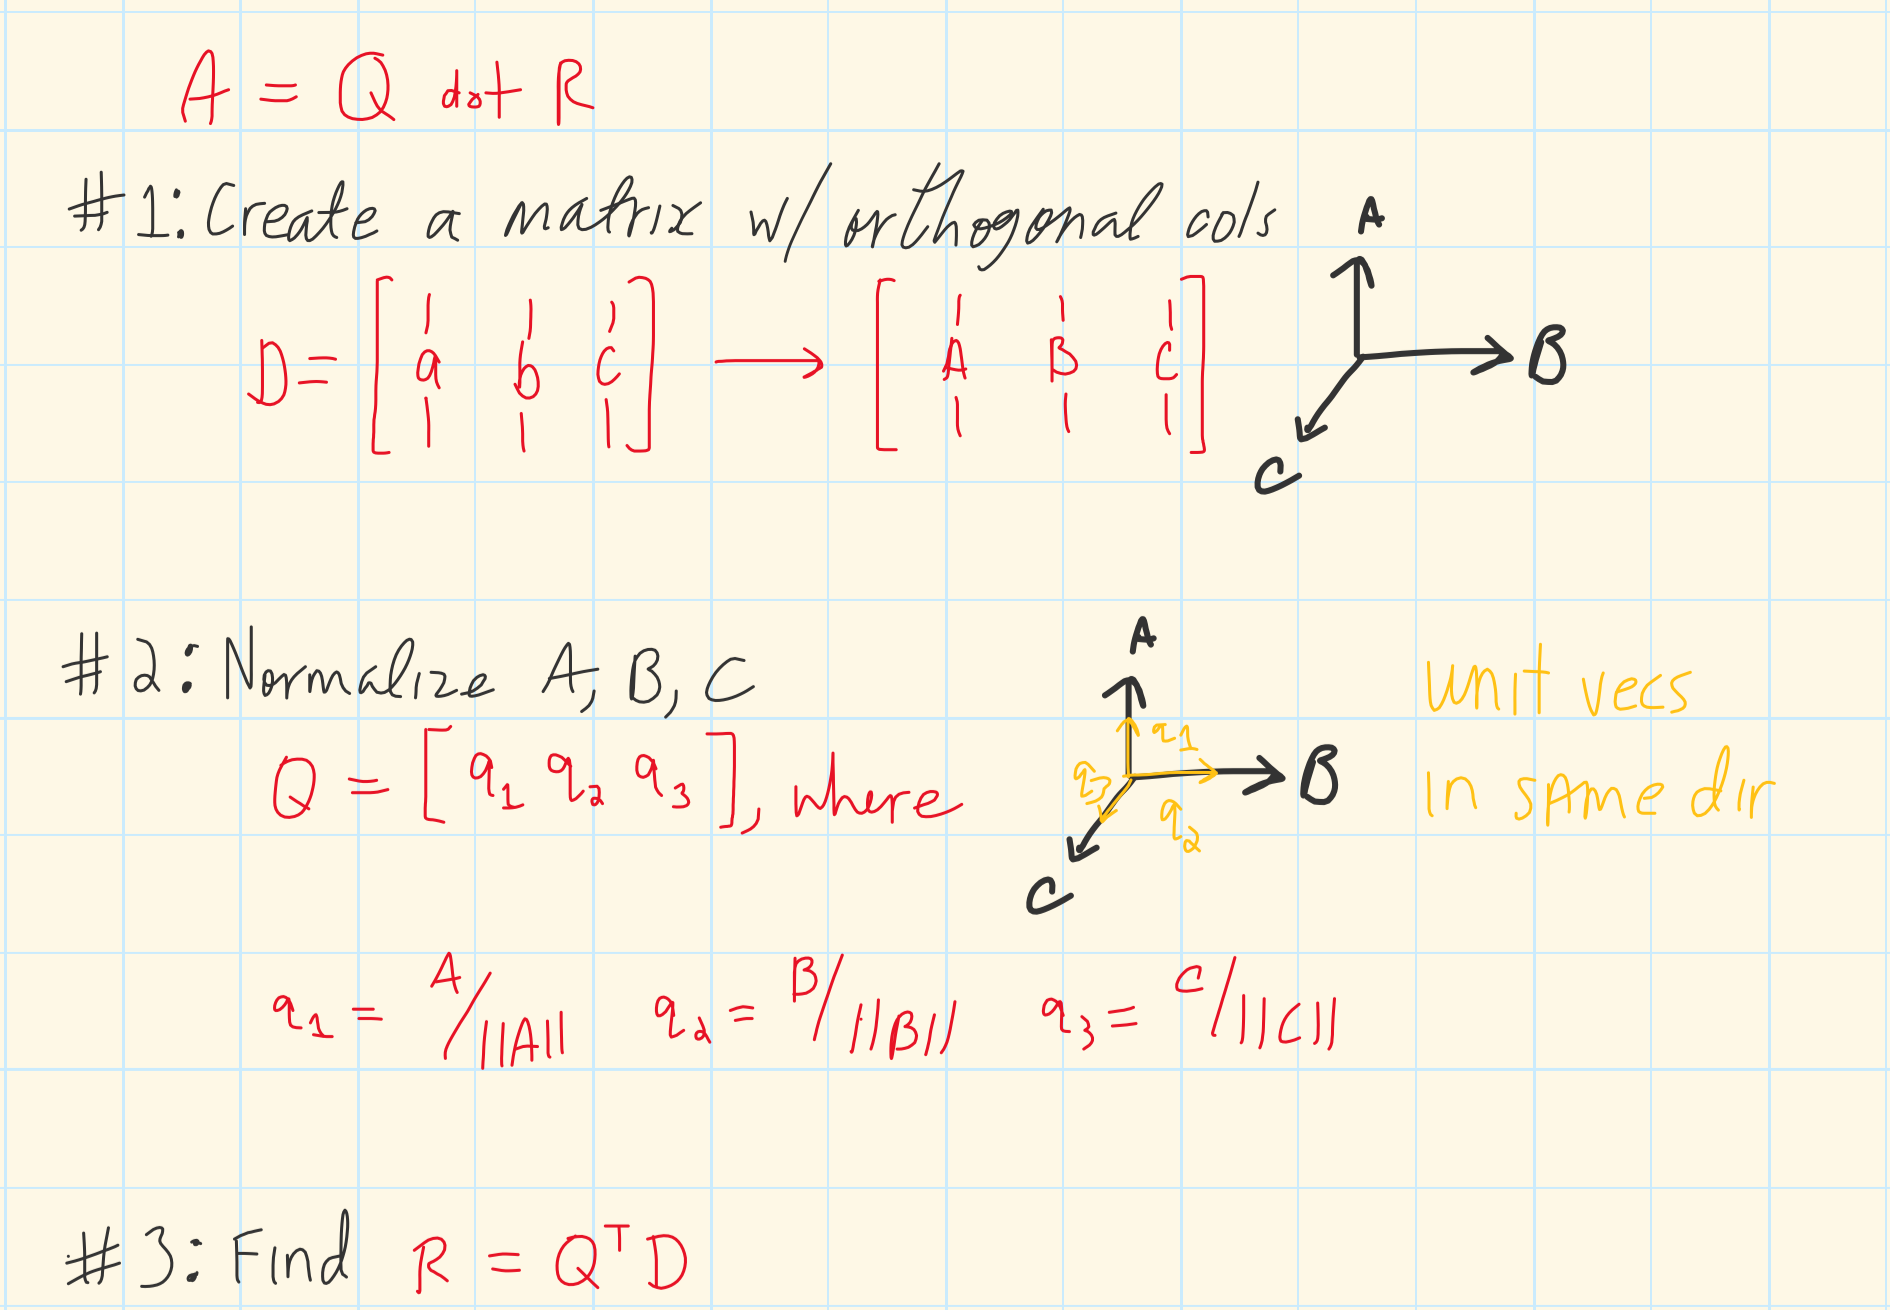 A = Q dot R
#1: Create a matrix w/ orthogonal cols
D = [a b c] → [A B C]
A
B
C
#2: Normalize A, B, C
Q = [q1 q2 q3], where
A
q1
B
q3
q2
C
unit vecs
in same dir
q1 = A/||A|| q2 = B/||B|| q3 = C/||C||
#3: Find R = Q^T D